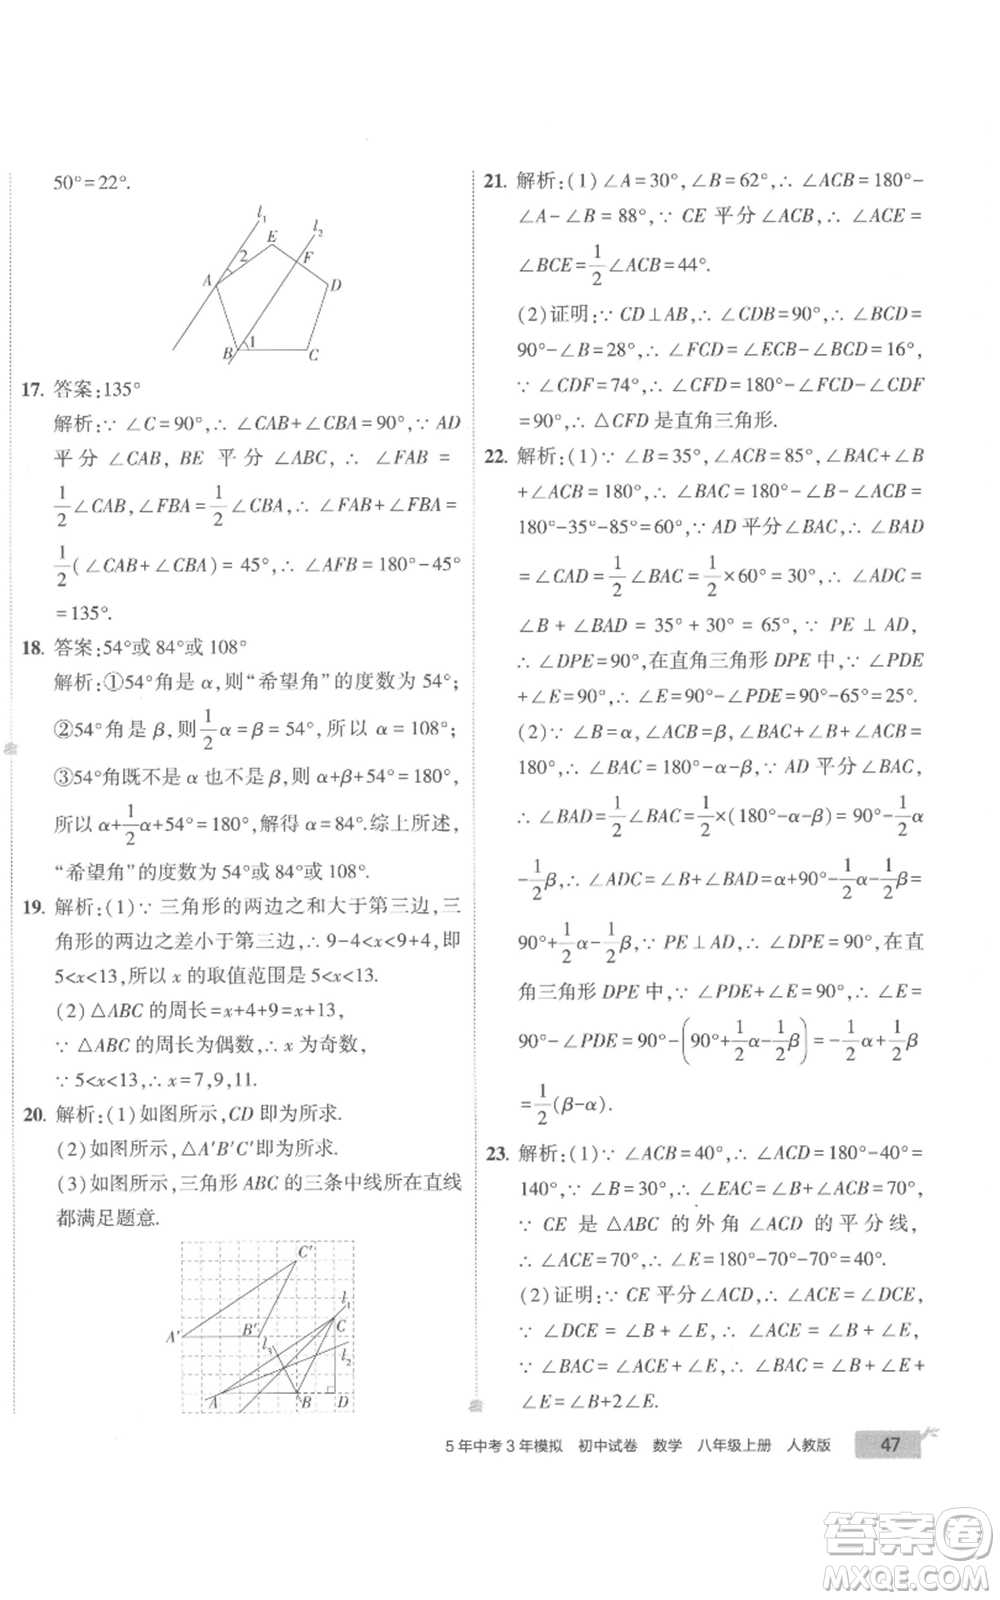 50°=22°.
l₁
l₂
E
2
F
A
D
B
1
C
17. 答案:135°
解析:∵ ∠C=90°,∴ ∠CAB+∠CBA=90°,∵ AD
平分 ∠CAB, BE 平分 ∠ABC, ∴ ∠FAB =
1/2∠CAB,∠FBA=1/2∠CBA,∴ ∠FAB+∠FBA=
1/2(∠CAB+∠CBA)=45°,∴ ∠AFB=180°-45°
=135°.
18. 答案:54°或 84°或 108°
解析:①54°角是 α,则“希望角”的度数为 54°;
②54°角是 β,则1/2α=β=54°,所以 α=108°;
③54°角既不是 α 也不是 β,则 α+β+54°=180°,
所以 α+1/2α+54°=180°,解得 α=84°.综上所述,
“希望角”的度数为 54°或 84°或 108°.
19. 解析:(1)∵ 三角形的两边之和大于第三边,三
角形的两边之差小于第三边,∴ 9-4<x<9+4,即
5<x<13,所以 x 的取值范围是 5<x<13.
(2)△ABC 的周长=x+4+9=x+13,
∵ △ABC 的周长为偶数,∴ x 为奇数,
∵ 5<x<13,∴ x=7,9,11.
20. 解析:(1)如图所示,CD 即为所求.
(2)如图所示,△A′B′C′即为所求.
(3)如图所示,三角形 ABC 的三条中线所在直线
都满足题意.
C′
l₁
A′
B′
l₃
C
l₂
A
B
D
21. 解析:(1)∠A=30°,∠B=62°,∴ ∠ACB=180°-
∠A-∠B=88°,∵ CE 平分∠ACB,∴ ∠ACE=
∠BCE=1/2∠ACB=44°.
(2)证明:∵ CD⊥AB,∴ ∠CDB=90°,∴ ∠BCD=
90°-∠B=28°,∴ ∠FCD=∠ECB-∠BCD=16°,
∵ ∠CDF=74°,∴ ∠CFD=180°-∠FCD-∠CDF
=90°,∴ △CFD 是直角三角形.
22. 解析:(1)∵ ∠B=35°,∠ACB=85°,∠BAC+∠B
+∠ACB=180°,∴ ∠BAC=180°-∠B-∠ACB=
180°-35°-85°=60°,∵ AD 平分∠BAC,∴ ∠BAD
=∠CAD=1/2∠BAC=1/2×60°=30°,∴ ∠ADC=
∠B + ∠BAD = 35°+ 30° = 65°, ∵ PE ⊥ AD,
∴ ∠DPE=90°,在直角三角形 DPE 中,∵ ∠PDE
+∠E=90°,∴ ∠E=90°-∠PDE=90°-65°=25°.
(2)∵ ∠B=α,∠ACB=β,∠BAC+∠B+∠ACB=
180°,∴ ∠BAC=180°-α-β,∵ AD 平分∠BAC,
∴ ∠BAD=1/2∠BAC=1/2×(180°-α-β)=90°-1/2α
-1/2β,∴ ∠ADC=∠B+∠BAD=α+90°-1/2α-1/2β=
90°+1/2α-1/2β,∵ PE⊥AD,∴ ∠DPE=90°,在直
角三角形 DPE 中,∵ ∠PDE+∠E=90°,∴ ∠E=
90°-∠PDE=90°-(90°+1/2α-1/2β)=-1/2α+1/2β
=1/2(β-α).
23. 解析:(1)∵ ∠ACB=40°,∴ ∠ACD=180°-40°=
140°,∵ ∠B=30°,∴ ∠EAC=∠B+∠ACB=70°,
∵ CE 是 △ABC 的外角 ∠ACD 的平分线,
∴ ∠ACE=70°,∴ ∠E=180°-70°-70°=40°.
(2)证明:∵ CE 平分∠ACD,∴ ∠ACE=∠DCE,
∵ ∠DCE = ∠B + ∠E, ∴ ∠ACE = ∠B + ∠E,
∵ ∠BAC=∠ACE+∠E,∴ ∠BAC=∠B+∠E+
∠E=∠B+2∠E.
5年中考3年模拟 初中试卷 数学 八年级上册 人教版 47
答案卷
MXQE.COM